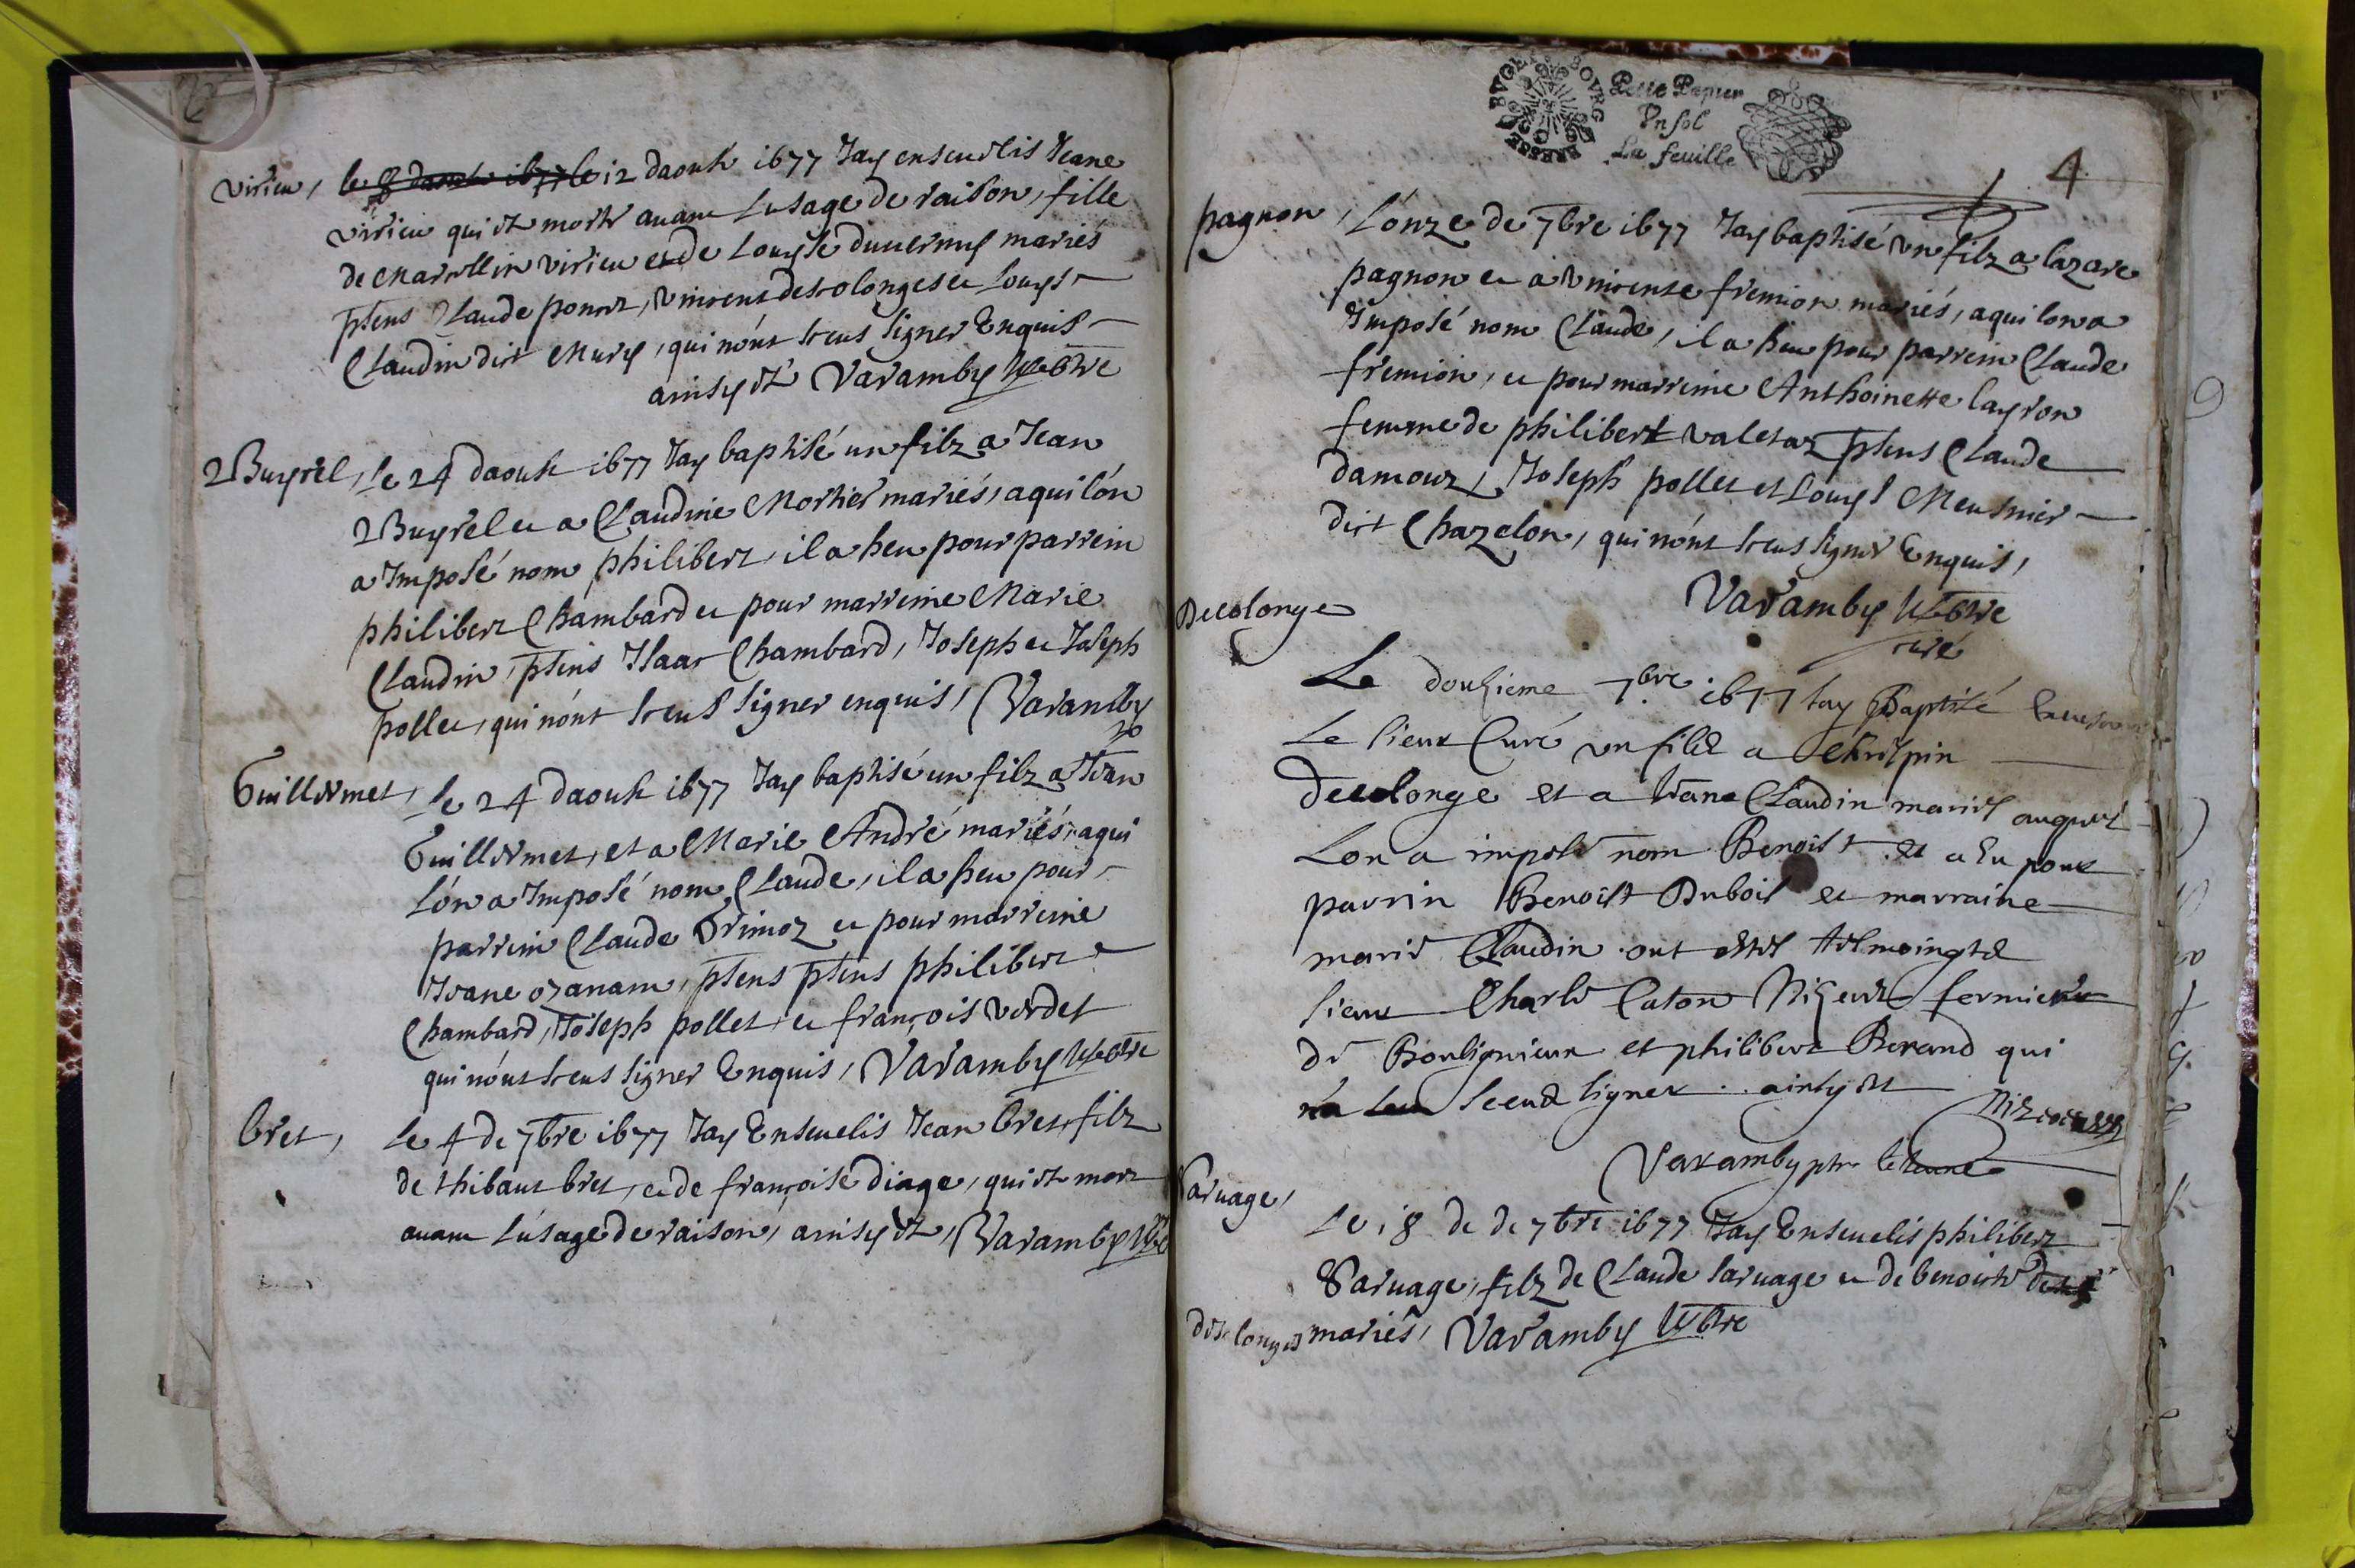 virieu, le 8 daoust 1677 le 12 daoust 1677 Jay enseuelis Jeane
virieu qui est morte auant Lusage de raison, fille
de Marcellin virieu et de Louyse duuernay mariés
pñs Claude poncet, Vincent descolonges et Louys
Claudin dict Mury, qui nónt sceus signer Enquis
ainsy est Varamby
2 Buyrel, le 24 daoust 1677 Jay baptisé un filz a Jean
2 Buyrel et a Claudine Mortier mariés, a qui lón
a Imposé nom philibert, il a heu pour parrein
philibert Chambard et pour marreine Marie
Claudin, pñs Isaac Chambard, Joseph et Joseph
pollet, qui nónt sceus signer enquis, Varamby
Guillermet, le 24 daoust 1677 Jay baptisé un filz a Jean
Guillermet, et a Marie André mariés, a qui
lón a Imposé nom Claude, il a heu pour
parrein Claude Primoz et pour marreine
Jeane ozanam, pñs pñs philibert
Chambard, Joseph pollet, et françois verdet
qui nónt sceus signer Enquis, Varamby
bret, le 4 de 7bre 1677 Jay Enseuelis Jean bret, filz
de thibaut bret, et de françoise diage, qui est mort
auant Lúsage de raison, ainsy est, Varamby
BRESSE BVGEY BOVRG
Petit Papier
Vn sol
La feuille
4
pagnon, Lónze de 7bre 1677 Jay baptisé vn filz a lazare
pagnon et a vincente fremion mariés, a qui lon a
Imposé nom Claude, il a heu pour parrein Claude
fremion, et pour marreine Anthoinette layron
femme de philibert valetaz pñs Claude
damour, Joseph pollet et Louys Meusnier
dict Chazelon, qui nónt sceus signer Enquis,
Varamby
curé
Decolonge
Le douzieme 7bre 1677 Jay Baptisé
Le sieur Curé vn filz a Chrispin
decolonge et a Jeane Claudin mariés auquel
Lon a imposé nom Benoist et a Eu pour
parrin Benoist Dubois et marraine
marie Claudin ont estes tesmoingtz
sieur Charle Caton Nizeret fermier
de Bouligneux et philibert Berand qui
na sceud signer ainsy est
Varamby ptr
Saruage, Le 18 de de 7bre 1677 Jay Enseuelis philibert
Saruage, filz de Claude saruage et de benoiste
descolonges mariés, Varamby